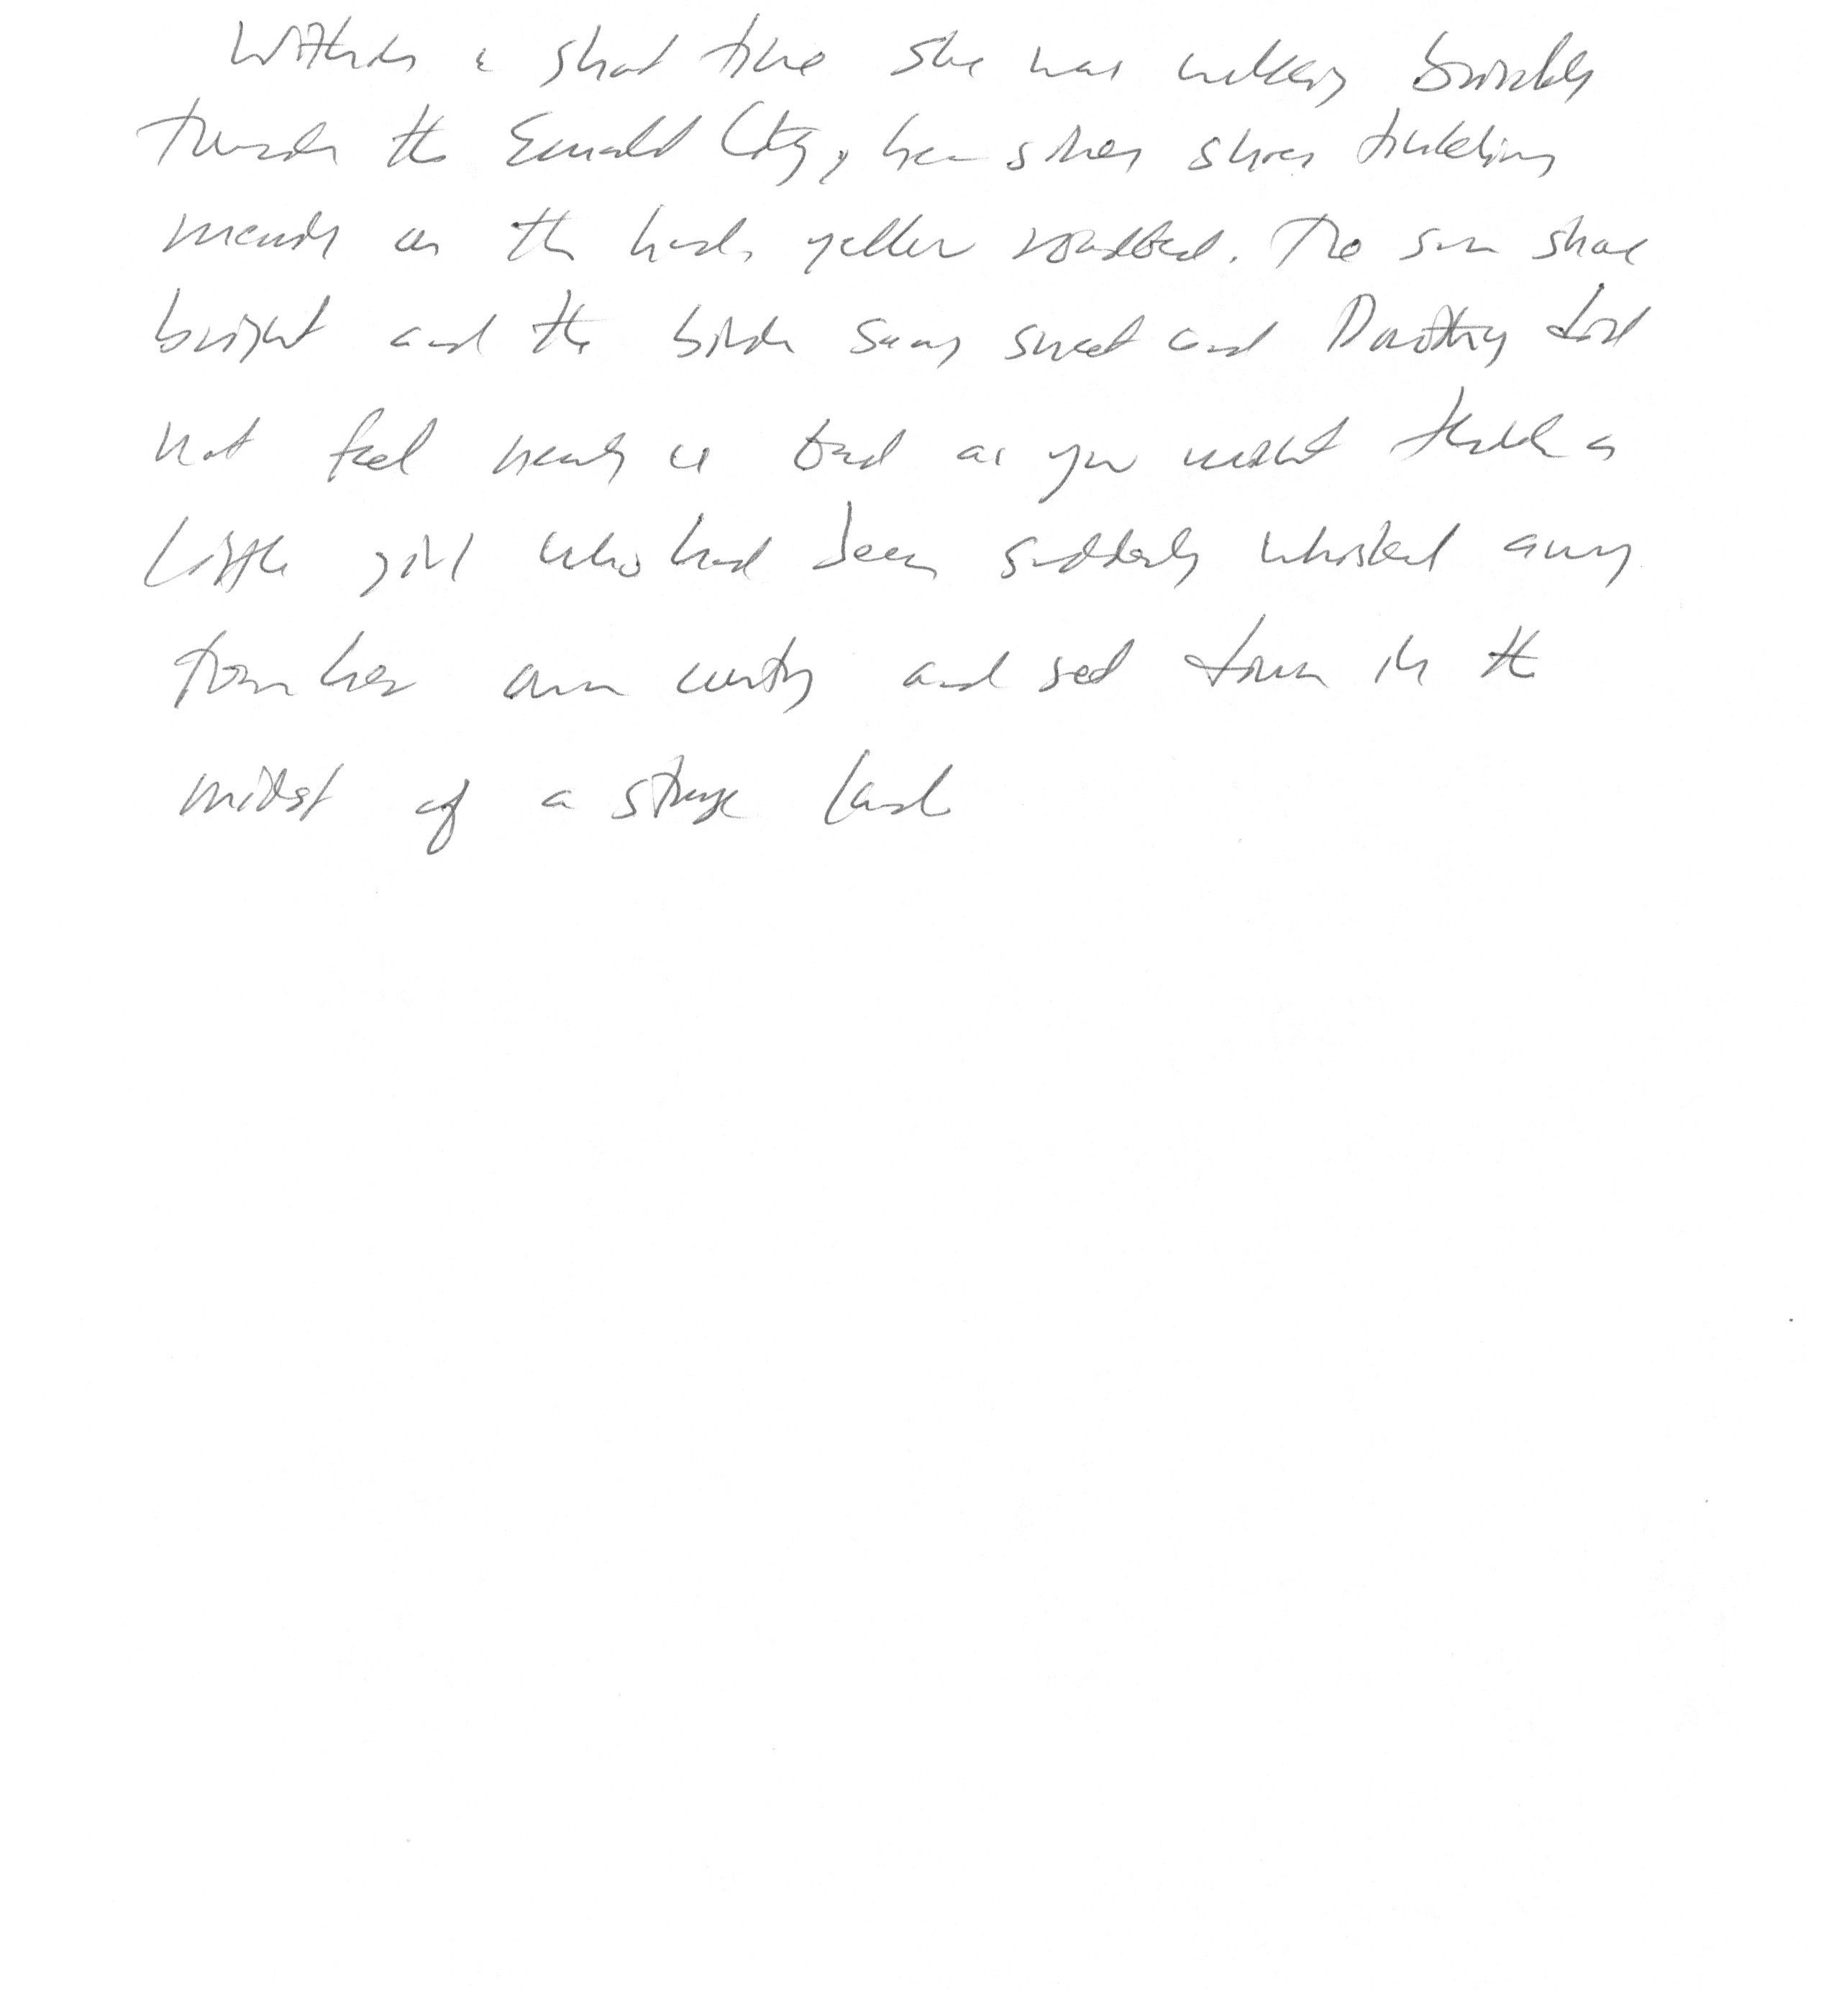 Within a short time she was walking briskly
towards the Emerald City, her silver shoes tinkling
merrily on the hard, yellow roadbed. The sun shone
bright and the birds sang sweet and Dorothy did
not feel nearly as bad as you might think a
little girl who had been suddenly whisked away
from her own country and set down in the
midst of a strange land